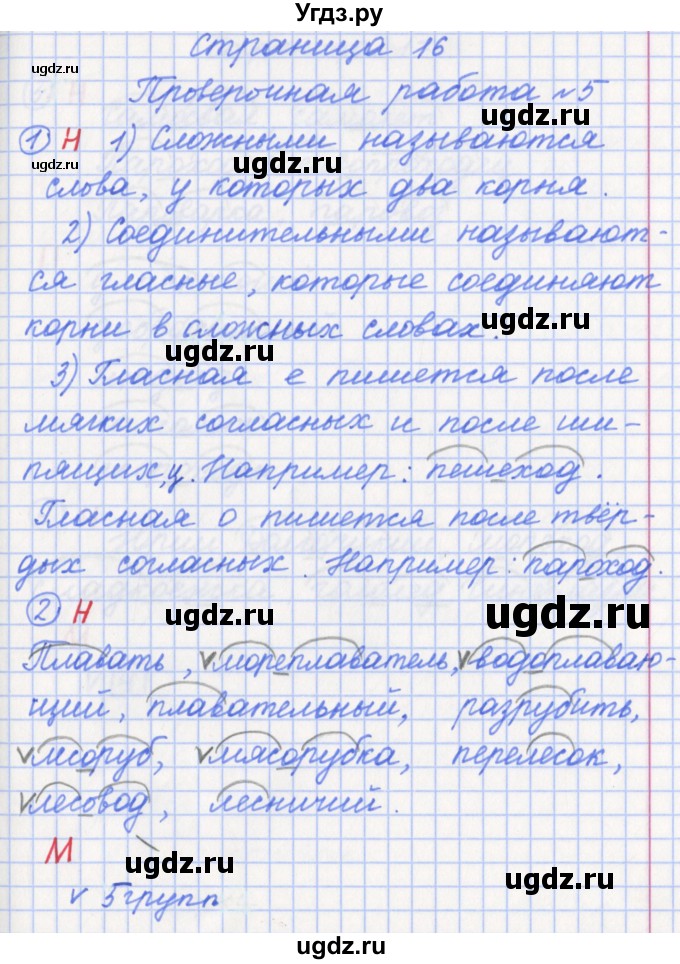 Угдз.ру
Страница 16
ugdz.ru
Проверочная работа №5
ugdz.ru
1) Н 1) Сложными называются
ugdz.ru ugdz.ru
слова, у которых два корня.
2) Соединительными называют-
ся гласные, которые соединяют
корни в сложных словах.
ugdz.ru ugdz.ru
3) Гласная е пишется после
мягких согласных и после ши-
пящих, ц. Например: пешеход.
Гласная о пишется после твёр-
дых согласных. Например: пароход.
2) Н ugdz.ru ugdz.ru
Плавать, v мореплаватель, v водоплаваю-
щий, плавательный, разрубить,
v лесоруб, v мясорубка, перелесок,
v лесовод, лесничий.
М
ugdz.ru ugdz.ru
v 5 групп
ugdz.ru
ugdz.ru